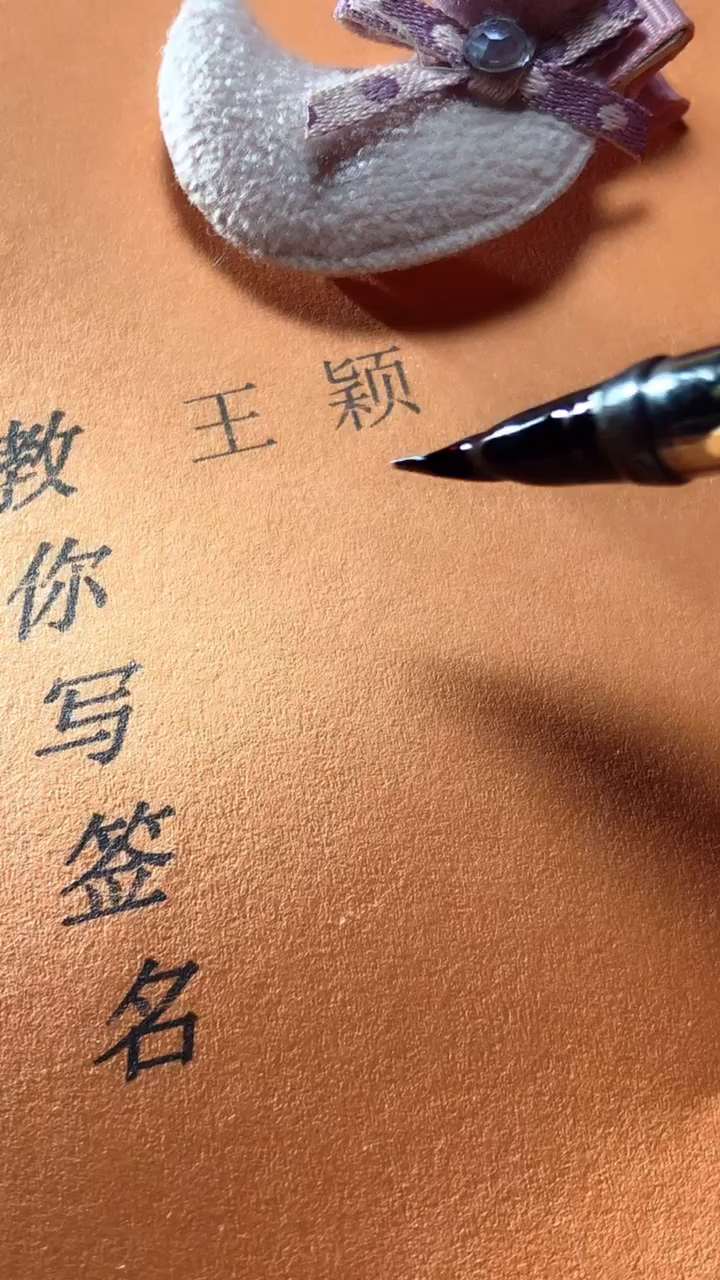 王颖
教你写签名